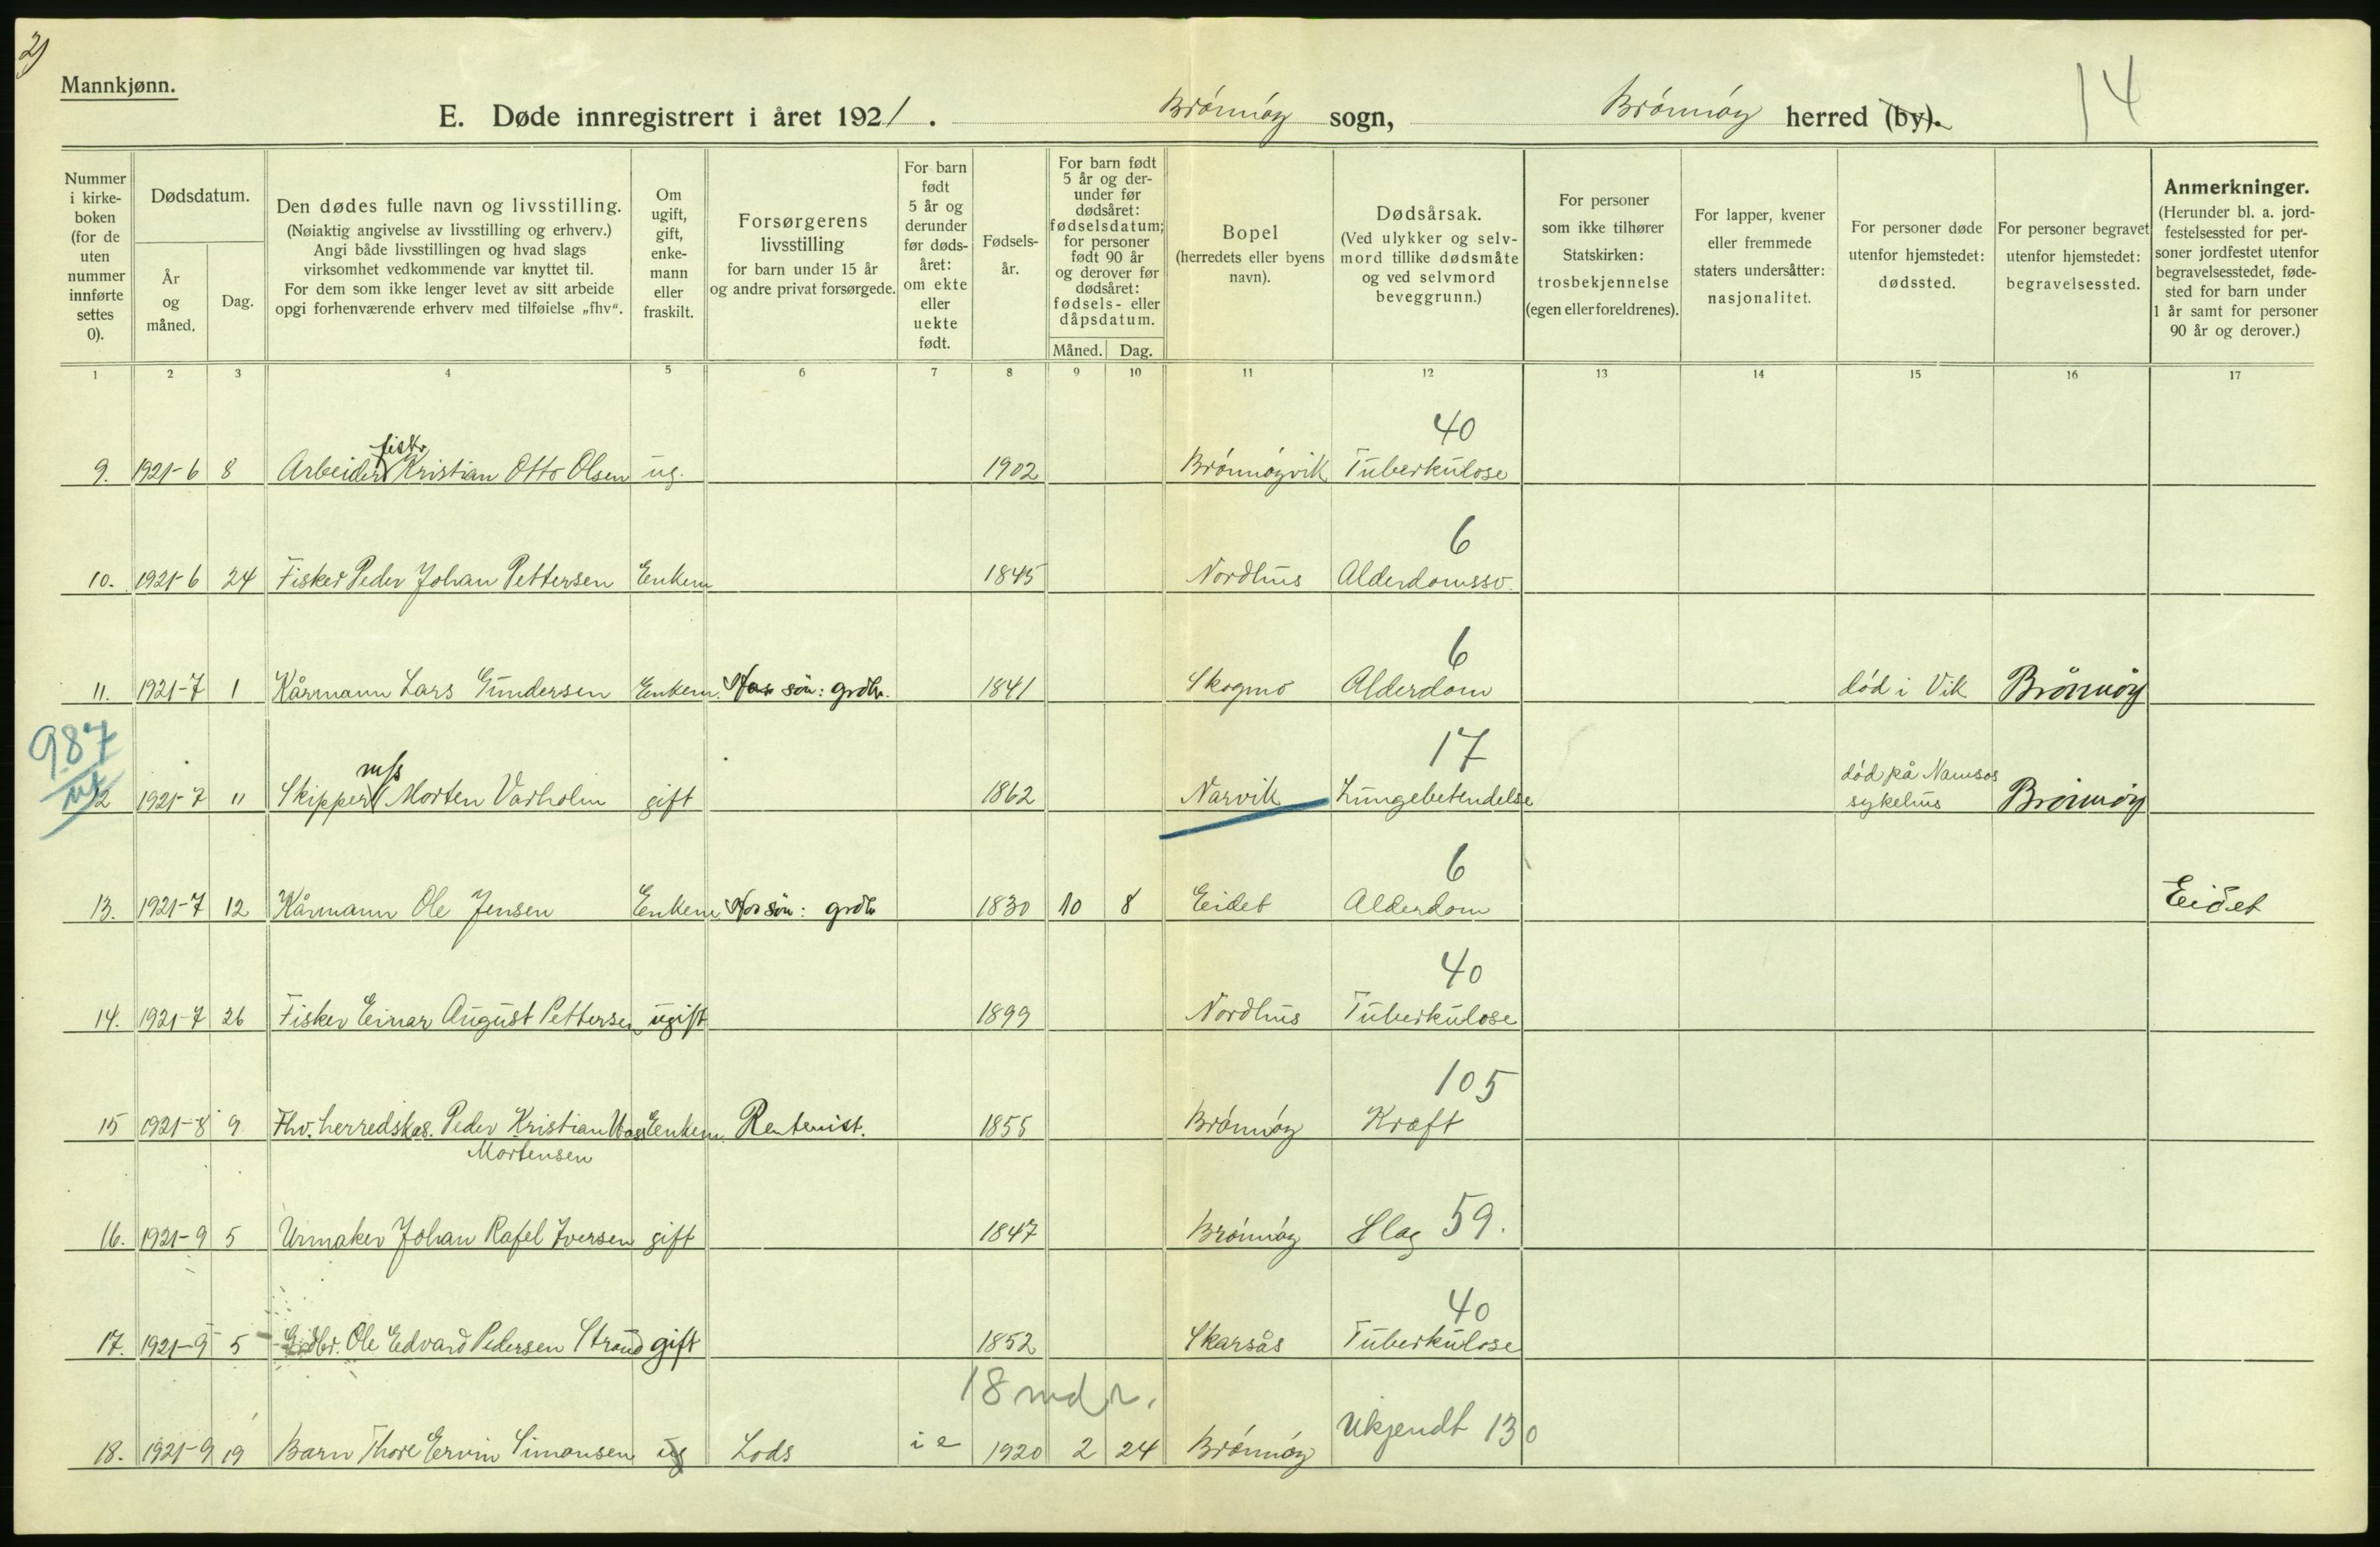 2)
Mannkjønn.
E. Døde innregistrert i året 1921. Brønnøy sogn, Brønnøy herred (by).
14
Nummer i kirke-boken (for de uten nummer innførte settes 0).
Dødsdatum.
År og måned.
Dag.
Den dødes fulle navn og livsstilling.
(Nøiaktig angivelse av livsstilling og erhverv.)
Angi både livsstillingen og hvad slags
virksomhet vedkommende var knyttet til.
For dem som ikke lenger levet av sitt arbeide
opgi forhenværende erhverv med tilføielse „fhv“.
Om ugift, gift, enke-mann eller fraskilt.
Forsørgerens livsstilling
for barn under 15 år
og andre privat forsørgede.
For barn født 5 år og derunder før døds-året: om ekte eller uekte født.
Fødsels-år.
For barn født 5 år og der-under før dødsåret: fødselsdatum; for personer født 90 år og derover før dødsåret: fødsels- eller dåpsdatum.
Måned. Dag.
Bopel
(herredets eller byens navn).
Dødsårsak.
(Ved ulykker og selv-mord tillike dødsmåte og ved selvmord beveggrunn.)
For personer som ikke tilhører Statskirken: trosbekjennelse (egen eller foreldrenes).
For lapper, kvener eller fremmede staters undersåtter: nasjonalitet.
For personer døde utenfor hjemstedet: dødssted.
For personer begravet utenfor hjemstedet: begravelsessted.
Anmerkninger.
(Herunder bl. a. jord-festelsessted for per-soner jordfestet utenfor begravelsesstedet, føde-sted for barn under 1 år samt for personer 90 år og derover.)
1 2 3 4 5 6 7 8 9 10 11 12 13 14 15 16 17
fisk. 40
9. 1921-6 8 Arbeider Kristian Otto Olsen ug. 1902 Brønnøyvik Tuberkulose
6
10. 1921-6 24 Fisker Peder Johan Pettersen Enkem 1845 Nordhus Alderdomssv.
6
11. 1921-7 1 Kårmann Lars Gundersen Enkem. Hos søn: grdbr. 1841 Skogmo Alderdom død i Vik Brønnøy
987 m/s 17
12 1921-7 11 Skipper Morten Varholm gift 1862 Narvik Lungebetendelse død på Namsos sykehus Brønnøy
6
13. 1921-7 12 Kårmann Ole Jensen Enkem Hos søn: grdb 1830 10 8 Eidet Alderdom Eidet
40
14. 1921-7 26 Fisker Einar August Pettersen ugift 1899 Nordhus Tuberkulose
105
15 1921-8 9 Fhv. herredskas. Peder Kristian Enkem. Rentenist. 1855 Brønnøy Kræft
Mortensen
16. 1921-9 5 Urmaker Johan Rafel Iversen gift 1847 Brønnøy Slag 59.
40
17. 1921-9 5 Grdbr. Ole Edvard Pedersen Strand gift 1852 Skarsås Tuberkulose
18 mdr.
18. 1921-9 19 Barn Thore Ervin Simonsen ug Lods i e 1920 2 24 Brønnøy Ukjendt 130